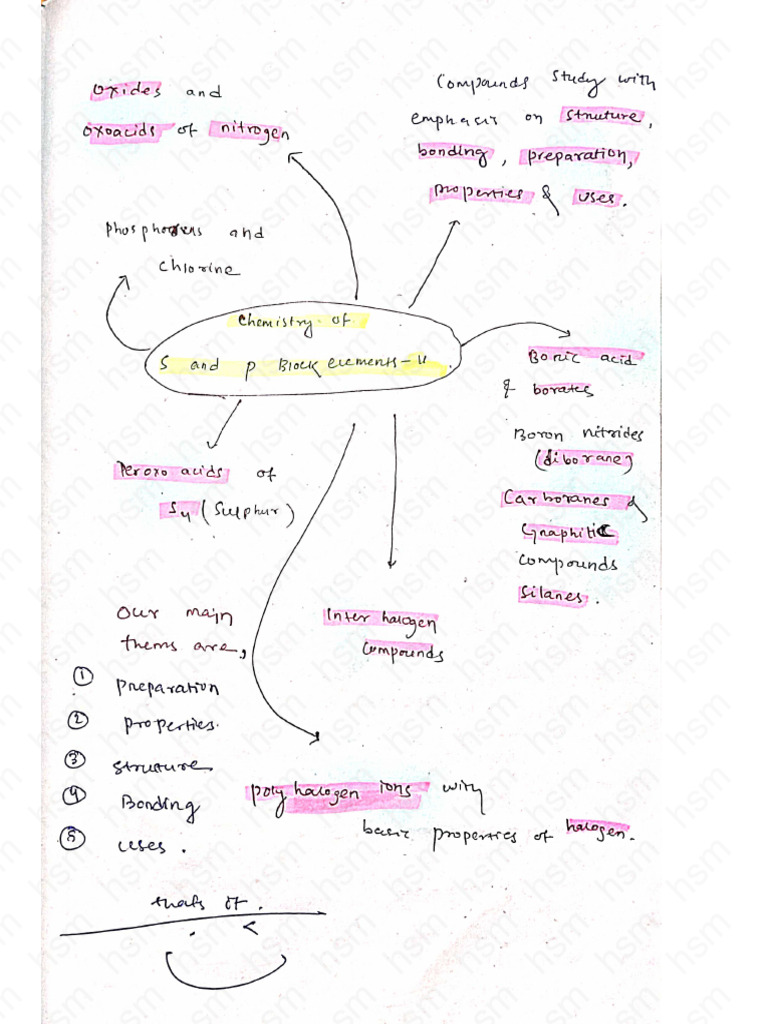 oxides and
oxoacids of nitrogen
Compounds study with
emphasis on struture,
bonding, preparation,
properties & uses.
phosphorus and
chlorine
Chemistry of
S and p Block elements-II
Boric acid
& borates
Boron nitrides
(diborane)
Carboranes &
Graphitic
compounds
Silanes.
Peroxo acids of
S4 (Sulphur)
Inter halogen
compounds
Our main
thems are,
① preparation
② properties.
③ struture
④ Bonding
⑤ uses.
poly halogen ions with
basic properties of halogen.
thats it.
hsm